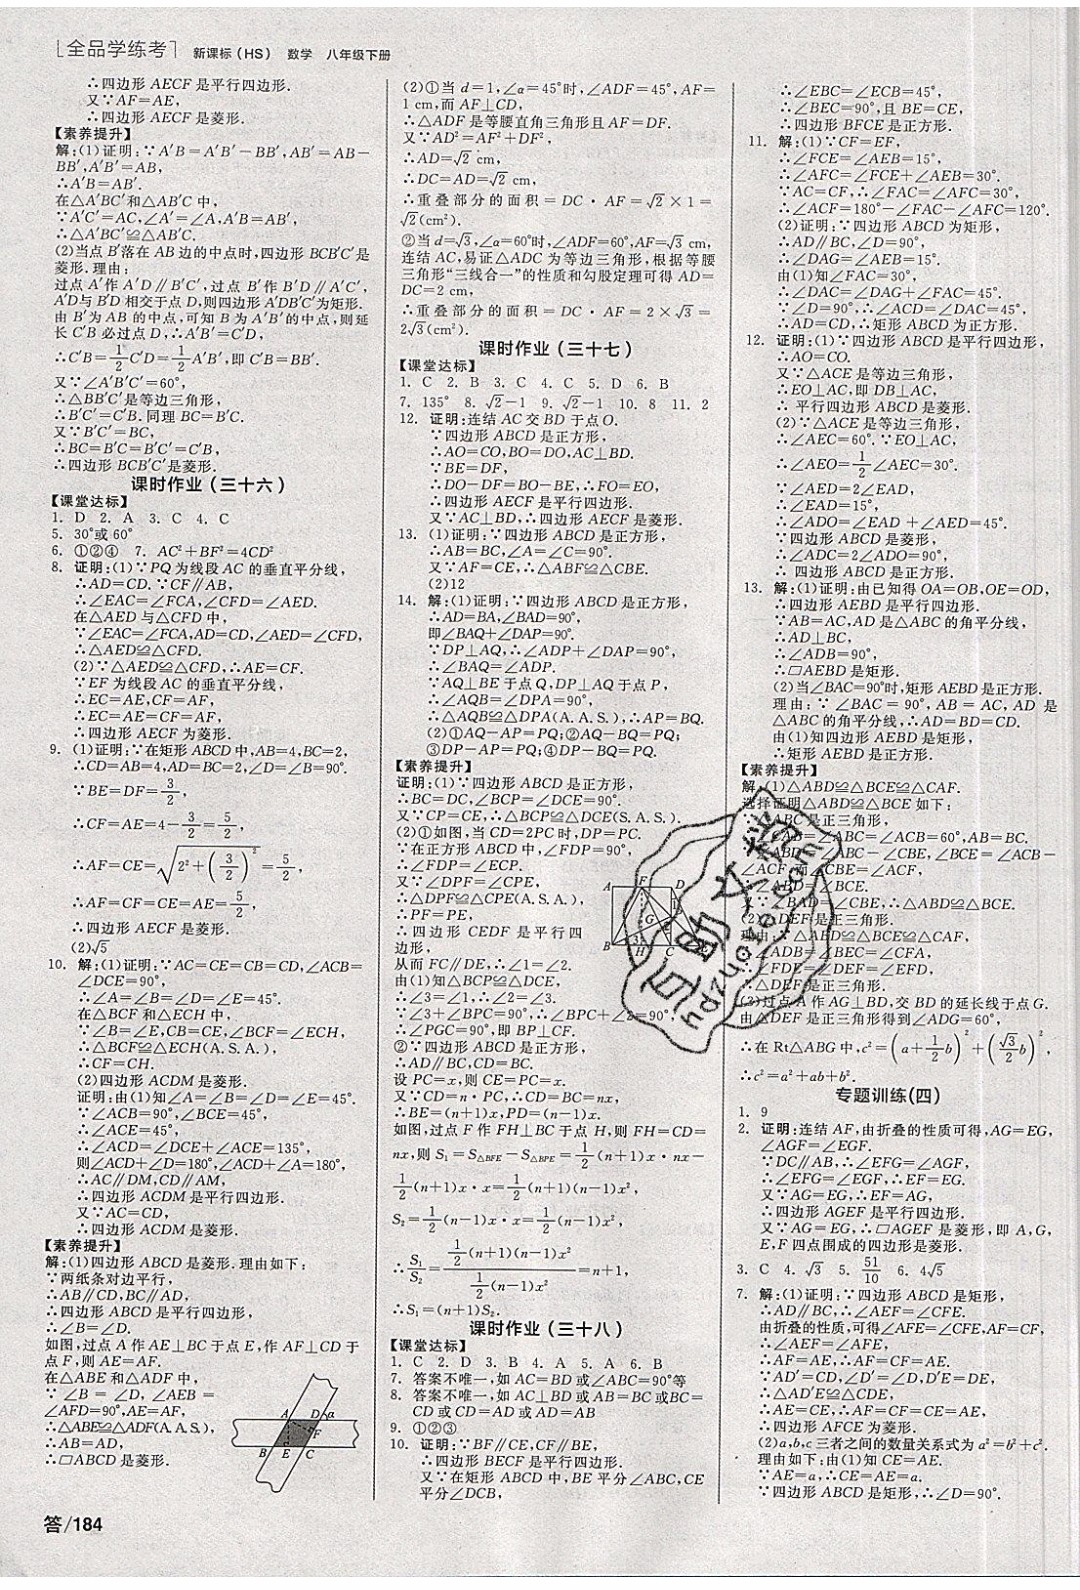 全品学练考 新课标(HS) 数学 八年级下册
∴四边形 AECF 是平行四边形.
又∵AF=AE,
∴四边形 AECF 是菱形.
【素养提升】
解:(1)证明:∵A′B=A′B′-BB′,AB′=AB-
BB′,A′B′=AB,
∴A′B=AB′.
在△A′BC′和△AB′C 中,
∵A′C′=AC,∠A′=∠A,A′B=AB′,
∴△A′BC′≌△AB′C.
(2)当点 B′落在 AB 边的中点时,四边形 BCB′C′是
菱形.理由:
过点 A′作 A′D∥B′C′,过点 B′作 B′D∥A′C′,
A′D与 B′D 相交于点 D,则四边形 A′DB′C′为矩形.
由 B′为 AB 的中点,可知 B 为 A′B′的中点,则延
长 C′B 必过点 D,∴A′B′=C′D,
∴C′B=1/2C′D=1/2A′B′,即 C′B=BB′.
又∵∠A′B′C′=60°,
∴△BB′C′是等边三角形,
∴B′C′=C′B.同理BC=B′C.
又∵B′C′=BC,
∴BC=B′C=B′C′=C′B,
∴四边形 BCB′C′是菱形.
课时作业(三十六)
【课堂达标】
1. D 2. A 3. C 4. C
5. 30°或 60°
6. ①②④ 7. AC²+BF²=4CD²
8. 证明:(1)∵PQ 为线段 AC 的垂直平分线,
∴AD=CD.∵CF∥AB,
∴∠EAC=∠FCA,∠CFD=∠AED.
在△AED 与△CFD 中,
∵∠EAC=∠FCA,AD=CD,∠AED=∠CFD,
∴△AED≌△CFD.
(2)∵△AED≌△CFD,∴AE=CF.
∵EF 为线段 AC 的垂直平分线,
∴EC=AE,CF=AF,
∴EC=AE=CF=AF,
∴四边形 AECF 为菱形.
9. (1)证明:∵在矩形 ABCD 中,AB=4,BC=2,
∴CD=AB=4,AD=BC=2,∠D=∠B=90°.
∵BE=DF=3/2,
∴CF=AE=4-3/2=5/2,
∴AF=CE=√(2²+(3/2)²)=5/2,
∴AF=CF=CE=AE=5/2,
∴四边形 AECF 是菱形.
(2)√5
10. 解:(1)证明:∵AC=CE=CB=CD,∠ACB=
∠DCE=90°,
∴∠A=∠B=∠D=∠E=45°.
在△BCF 和△ECH 中,
∵∠B=∠E,CB=CE,∠BCF=∠ECH,
∴△BCF≌△ECH(A.S.A.),
∴CF=CH.
(2)四边形 ACDM 是菱形.
证明:由(1)知∠A=∠B=∠D=∠E=45°.
∵∠ACB=90°,∠BCE=45°,
∴∠ACE=45°,
∴∠ACD=∠DCE+∠ACE=135°,
则∠ACD+∠D=180°,∠ACD+∠A=180°,
∴AC∥DM,CD∥AM,
∴四边形 ACDM 是平行四边形.
又∵AC=CD,
∴四边形 ACDM 是菱形.
【素养提升】
解:(1)四边形 ABCD 是菱形.理由如下:
∵两纸条对边平行,
∴AB∥CD,BC∥AD,
∴四边形 ABCD 是平行四边形,
∴∠B=∠D.
如图,过点 A 作 AE⊥BC 于点 E,作 AF⊥CD 于
点 F,则 AE=AF.
在△ABE 和△ADF 中,
∵∠B=∠D,∠AEB=
∠AFD=90°,AE=AF,
∴△ABE≌△ADF(A.A.S.),
∴AB=AD,
∴□ABCD 是菱形.
A D α F B E C
(2)①当 d=1,∠α=45°时,∠ADF=45°,AF=
1 cm,而 AF⊥CD,
∴△ADF 是等腰直角三角形且 AF=DF.
又∵AD²=AF²+DF²,
∴AD=√2 cm,
∴DC=AD=√2 cm,
∴重叠部分的面积=DC·AF=√2×1=
√2(cm²).
②当 d=√3,∠α=60°时,∠ADF=60°,AF=√3 cm,
连结 AC,易证△ADC 为等边三角形,根据等腰
三角形“三线合一”的性质和勾股定理可得 AD=
DC=2 cm,
∴重叠部分的面积=DC·AF=2×√3=
2√3(cm²).
课时作业(三十七)
【课堂达标】
1. C 2. B 3. C 4. C 5. D 6. B
7. 135° 8. √2-1 9. √2-1 10. 8 11. 2
12. 证明:连结 AC 交 BD 于点 O.
∵四边形 ABCD 是正方形,
∴AO=CO,BO=DO,AC⊥BD.
∵BE=DF,
∴DO-DF=BO-BE,∴FO=EO,
∴四边形 AECF 是平行四边形.
又∵AC⊥BD,∴四边形 AECF 是菱形.
13. (1)证明:∵四边形 ABCD 是正方形,
∴AB=BC,∠A=∠C=90°.
又∵AF=CE,∴△ABF≌△CBE.
(2)12
14. 解:(1)证明:∵四边形 ABCD 是正方形,
∴AD=BA,∠BAD=90°,
即∠BAQ+∠DAP=90°.
∵DP⊥AQ,∴∠ADP+∠DAP=90°,
∴∠BAQ=∠ADP.
∵AQ⊥BE 于点 Q,DP⊥AQ于点 P,
∴∠AQB=∠DPA=90°,
∴△AQB≌△DPA(A.A.S.),∴AP=BQ.
(2)①AQ-AP=PQ;②AQ-BQ=PQ;
③DP-AP=PQ;④DP-BQ=PQ.
【素养提升】
证明:(1)∵四边形 ABCD 是正方形,
∴BC=DC,∠BCP=∠DCE=90°.
又∵CP=CE,∴△BCP≌△DCE(S.A.S.).
(2)①如图,当 CD=2PC 时,DP=PC.
∵在正方形 ABCD 中,∠FDP=90°,
∴∠FDP=∠ECP.
又∵∠DPF=∠CPE,
∴△DPF≌△CPE(A.S.A.),
∴PF=PE,
∴四边形 CEDF 是平行四
边形,
从而 FC∥DE,∴∠1=∠2.
由(1)知△BCP≌△DCE,
∴∠3=∠1,∴∠2=∠3.
∵∠3+∠BPC=90°,∴∠BPC+∠2=90°,
∴∠PGC=90°,即 BP⊥CF.
②∵四边形 ABCD 是正方形,
∴AD∥BC,CD=BC.
设 PC=x,则 CE=PC=x.
又∵CD=n·PC,∴CD=BC=nx,
∴BE=(n+1)x,PD=(n-1)x.
如图,过点 F 作 FH⊥BC 于点 H,则 FH=CD=
nx,则 S₁=S△BFE-S△BPE=1/2(n+1)x·nx-
1/2(n+1)x·x=1/2(n+1)(n-1)x²,
S₂=1/2(n-1)x·x=1/2(n-1)x²,
∴S₁/S₂=(1/2(n+1)(n-1)x²)/(1/2(n-1)x²)=n+1,
∴S₁=(n+1)S₂.
课时作业(三十八)
【课堂达标】
1. C 2. D 3. B 4. A 5. A 6. B
7. 答案不唯一,如 AC=BD 或∠ABC=90°等
8. 答案不唯一,如 AC⊥BD 或 AB=BC 或BC=
CD 或 CD=AD 或 AD=AB
9. ①②③
10. 证明:∵BF∥CE,CF∥BE,
∴四边形 BECF 是平行四边形.
又∵在矩形 ABCD 中,BE 平分∠ABC,CE
平分∠DCB,
∴∠EBC=∠ECB=45°,
∴∠BEC=90°,且 BE=CE,
∴四边形 BFCE 是正方形.
11. 解:(1)∵CF=EF,
∴∠FCE=∠AEB=15°,
∴∠AFC=∠FCE+∠AEB=30°.
∵AC=CF,∴∠FAC=∠AFC=30°,
∴∠ACF=180°-∠FAC-∠AFC=120°.
(2)证明:∵四边形 ABCD 为矩形,
∴AD∥BC,∠D=90°,
∴∠DAG=∠AEB=15°.
由(1)知∠FAC=30°,
∴∠DAC=∠DAG+∠FAC=45°.
∵∠D=90°,∴∠DCA=∠DAC=45°,
∴AD=CD,∴矩形 ABCD 为正方形.
12. 证明:(1)∵四边形 ABCD 是平行四边形,
∴AO=CO.
又∵△ACE 是等边三角形,
∴EO⊥AC,即 DB⊥AC,
∴平行四边形 ABCD 是菱形.
(2)∵△ACE 是等边三角形,
∴∠AEC=60°.∵EO⊥AC,
∴∠AEO=1/2∠AEC=30°.
∵∠AED=2∠EAD,
∴∠EAD=15°,
∴∠ADO=∠EAD+∠AED=45°.
∵四边形 ABCD 是菱形,
∴∠ADC=2∠ADO=90°,
∴四边形 ABCD 是正方形.
13. 解:(1)证明:由已知得 OA=OB,OE=OD,
∴四边形 AEBD 是平行四边形.
∵AB=AC,AD 是△ABC 的角平分线,
∴AD⊥BC,
∴∠ADB=90°,
∴□AEBD 是矩形.
(2)当∠BAC=90°时,矩形 AEBD 是正方形.
理由:∵∠BAC=90°,AB=AC,AD 是
△ABC 的角平分线,∴AD=BD=CD.
由(1)知四边形 AEBD 是矩形,
∴矩形 AEBD 是正方形.
【素养提升】
解:(1)△ABD≌△BCE≌△CAF.
选择证明△ABD≌△BCE 如下:
∵△ABC 是正三角形,
∴∠CAB=∠ABC=∠ACB=60°,AB=BC.
∵∠ABD=∠ABC-∠CBE,∠BCE=∠ACB-
∠ACF,而∠CBE=∠ACF,
∴∠ABD=∠BCE.
又∵∠BAD=∠CBE,∴△ABD≌△BCE.
(2)△DEF 是正三角形.
理由:∵△ABD≌△BCE≌△CAF,
∴∠ADB=∠BEC=∠CFA,
∴∠FDE=∠DEF=∠EFD,
∴△DEF 是正三角形.
(3)过点 A 作 AG⊥BD,交 BD 的延长线于点 G.
由△DEF 是正三角形得到∠ADG=60°,
∴在 Rt△ABG 中,c²=(a+1/2b)²+(√3/2b)²,
∴c²=a²+ab+b².
专题训练(四)
1. 9
2. 证明:连结 AF,由折叠的性质可得,AG=EG,
∠AGF=∠EGF.
∵DC∥AB,∴∠EFG=∠AGF,
∴∠EFG=∠EGF,∴EF=EG.
又∵AG=EG,∴EF=AG,
∴四边形 AGEF 是平行四边形.
又∵AG=EG,∴□AGEF 是菱形,即 A,G,
E,F 四点围成的四边形是菱形.
3. C 4. √3 5. 51/10 6. 4√5
7. 解:(1)证明:∵四边形 ABCD 是矩形,
∴AD∥BC,∴∠AEF=∠CFE.
由折叠的性质,可得∠AFE=∠CFE,AF=CF,
∴∠AEF=∠AFE,
∴AF=AE,∴AF=CF=AE.
∵AD′=CD,∠D′=∠D,D′E=DE,
∴△AD′E≌△CDE,
∴AE=CE,∴AF=CF=CE=AE,
∴四边形 AFCE 为菱形.
(2)a,b,c 三者之间的数量关系式为 a²=b²+c².
理由如下:由(1)知 CE=AE.
∵AE=a,∴CE=AE=a.
∵四边形 ABCD 是矩形,∴∠D=90°.
答/184